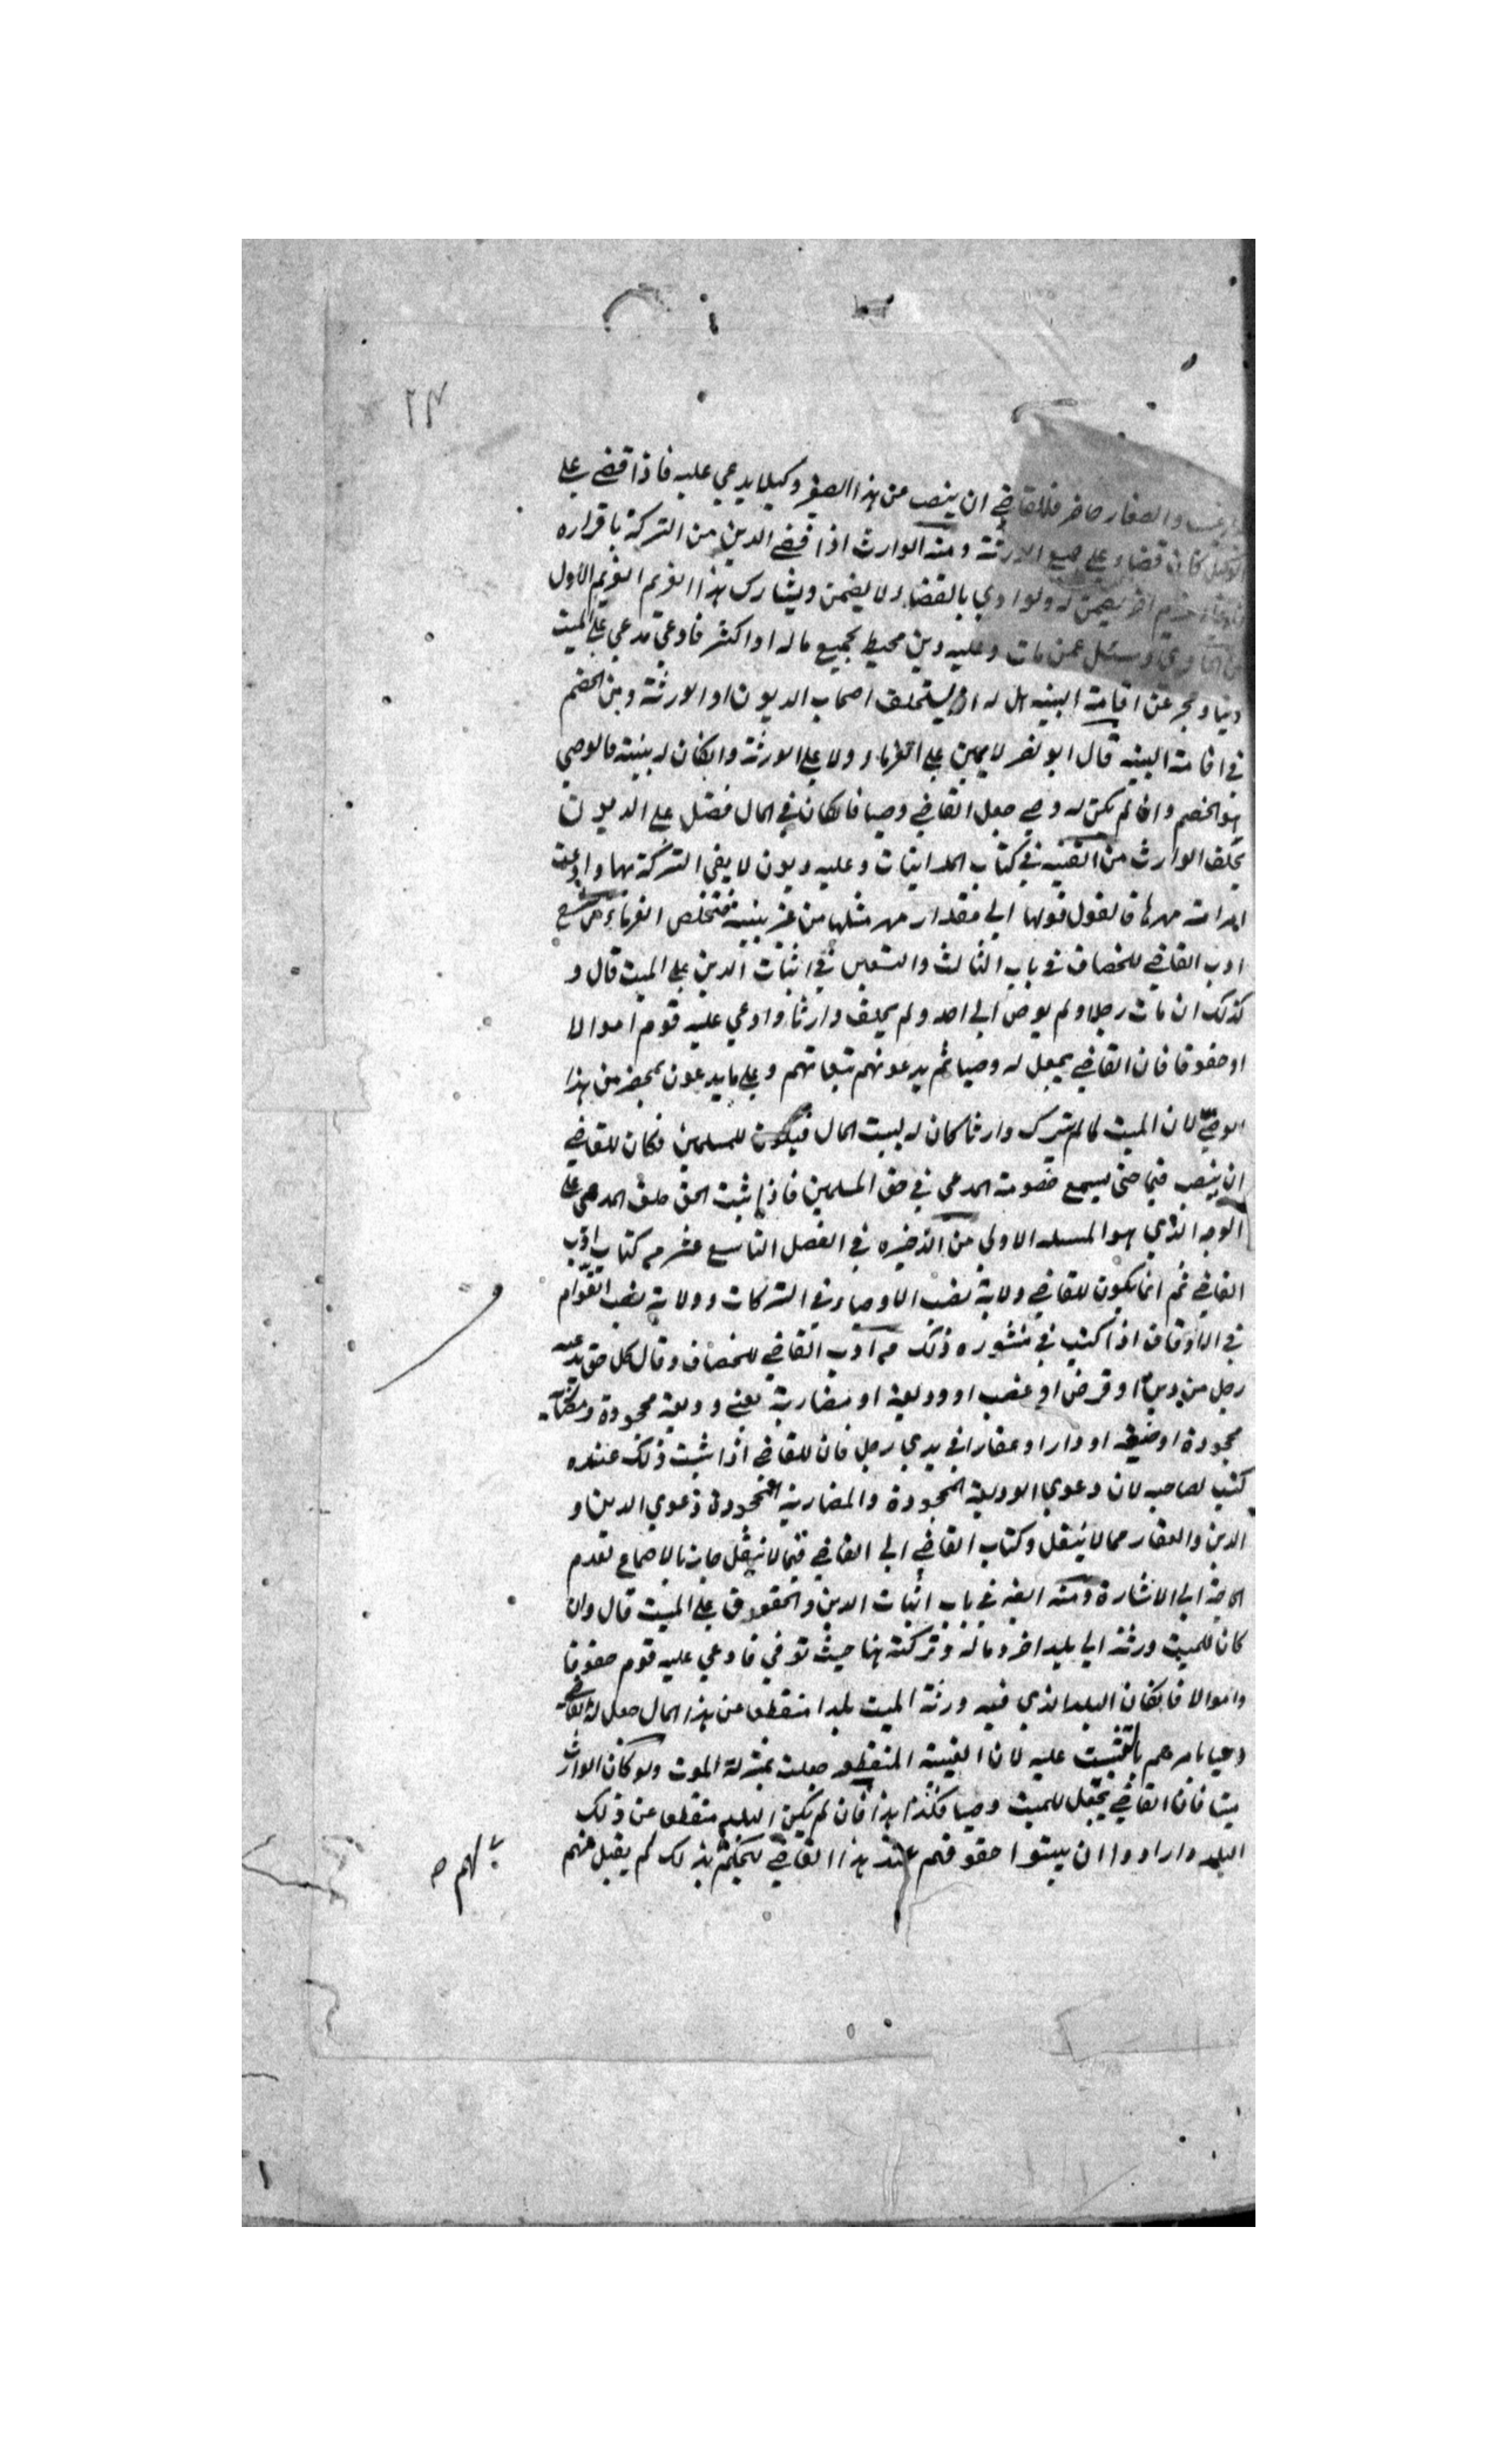 ٢٤
والصغار حاضر فللقاضي ان ينصب عن هذا الصغير وكيلا يدعي عليه فاذا قضي علي
الوكيل كان قضاء علي جميع الورثة ومنه الوارث اذا قضي الدين من التركة باقراره
اخر يضمن له ولو ادي بالقضاء لا يضمن ويشارك هذا الغريم الغريم الاول
من الحاوي وسئل عمن مات وعليه دين محيط بجميع ماله او اكثر فادعي مدعي علي الميت
دينا وعجز عن اقامة البينه هل له ان يستحلف اصحاب الديون او الورثة ومن الخصم
في اقامة البينه قال ابو نصر لا يمين علي الغرماء ولا علي الورثة وانكان له بينة فالوصي
هو الخصم وان لم يكن له وصي جعل القاضي وصيا فانكان في المال فضل علي الديون
يحلف الوارث من القنيه في كتاب المداينات وعليه ديون لا يفي التركة بها وادعت
امراته مهرها فالقول قولها الي مقدار مهر مثلها من غير بينة فتخلص الغرماء من شرح
ادب القاضي للخصاف في باب الثالث والتسعين في اثبات الدين علي الميت قال و
كذلك ان مات رجل ولم يوص الي احد ولم يخلف وارثا وادعي عليه قوم اموالا
او حقوقا فان القاضي يجعل له وصيا ثم يدعونهم ببيناتهم وعلي ما يدعون بمحضر من هذا
الوصي لان الميت لما لم يترك وارثا كان له لبيت المال فيكون للمسلمين فكان للقاضي
ان ينصب قيما حتي يسمع خصومة المدعي في حق المسلمين فاذا ثبت الحق حلف المدعي علي
الوجه الذي هو المسله الاولي من الذخيره في الفصل التاسع عشر من كتاب ادب
القاضي ثم انما يكون للقاضي ولاية نصب الاوصياء في التركات وولاية نصب القوام
في الاوقاف اذا كتب في منشوره ذلك من ادب القاضي للخصاف وقال كل حق يدعيه
رجل من دين او قرض او غصب او وديعة او مضاربة يعني وديعة مجحودة ومضاربة
مجحودة او ضيعه او دارا او عقارا في يدي رجل فان للقاضي اذا ثبت ذلك عنده
كتب لصاحبه لان دعوي الوديعة المجحودة والمضاربة المجحودة دعوي الدين و
الدين والعقار مما لا ينقل وكتاب القاضي الي القاضي فيما لا ينقل جايز بالاجماع لعدم
الحاجة الي الاشارة ومنه ايضه في باب اثبات الدين والحقوق علي الميت قال وان
كان للميت ورثة الي بلد اخر وماله وتركته هنا حيث توفي فادعي عليه قوم حقوقا
واموالا فانكان البلد الذي فيه ورثة الميت بلدا منقطعا عن هذا المال جعل له القاضي
وصيا بامرهم بالتثبت عليه لان الغيبة المنقطعه جعلت بمنزلة الموت ولو كان الوارث
ميتا فان القاضي يجعل للميت وصيا فكذا هذا فان لم يكن البلد منقطعا عن ذلك
البلد وارادوا ان يبثوا حقوقهم عند هذا القاضي ليحكم بذلك لم يقبل منهم
لهم